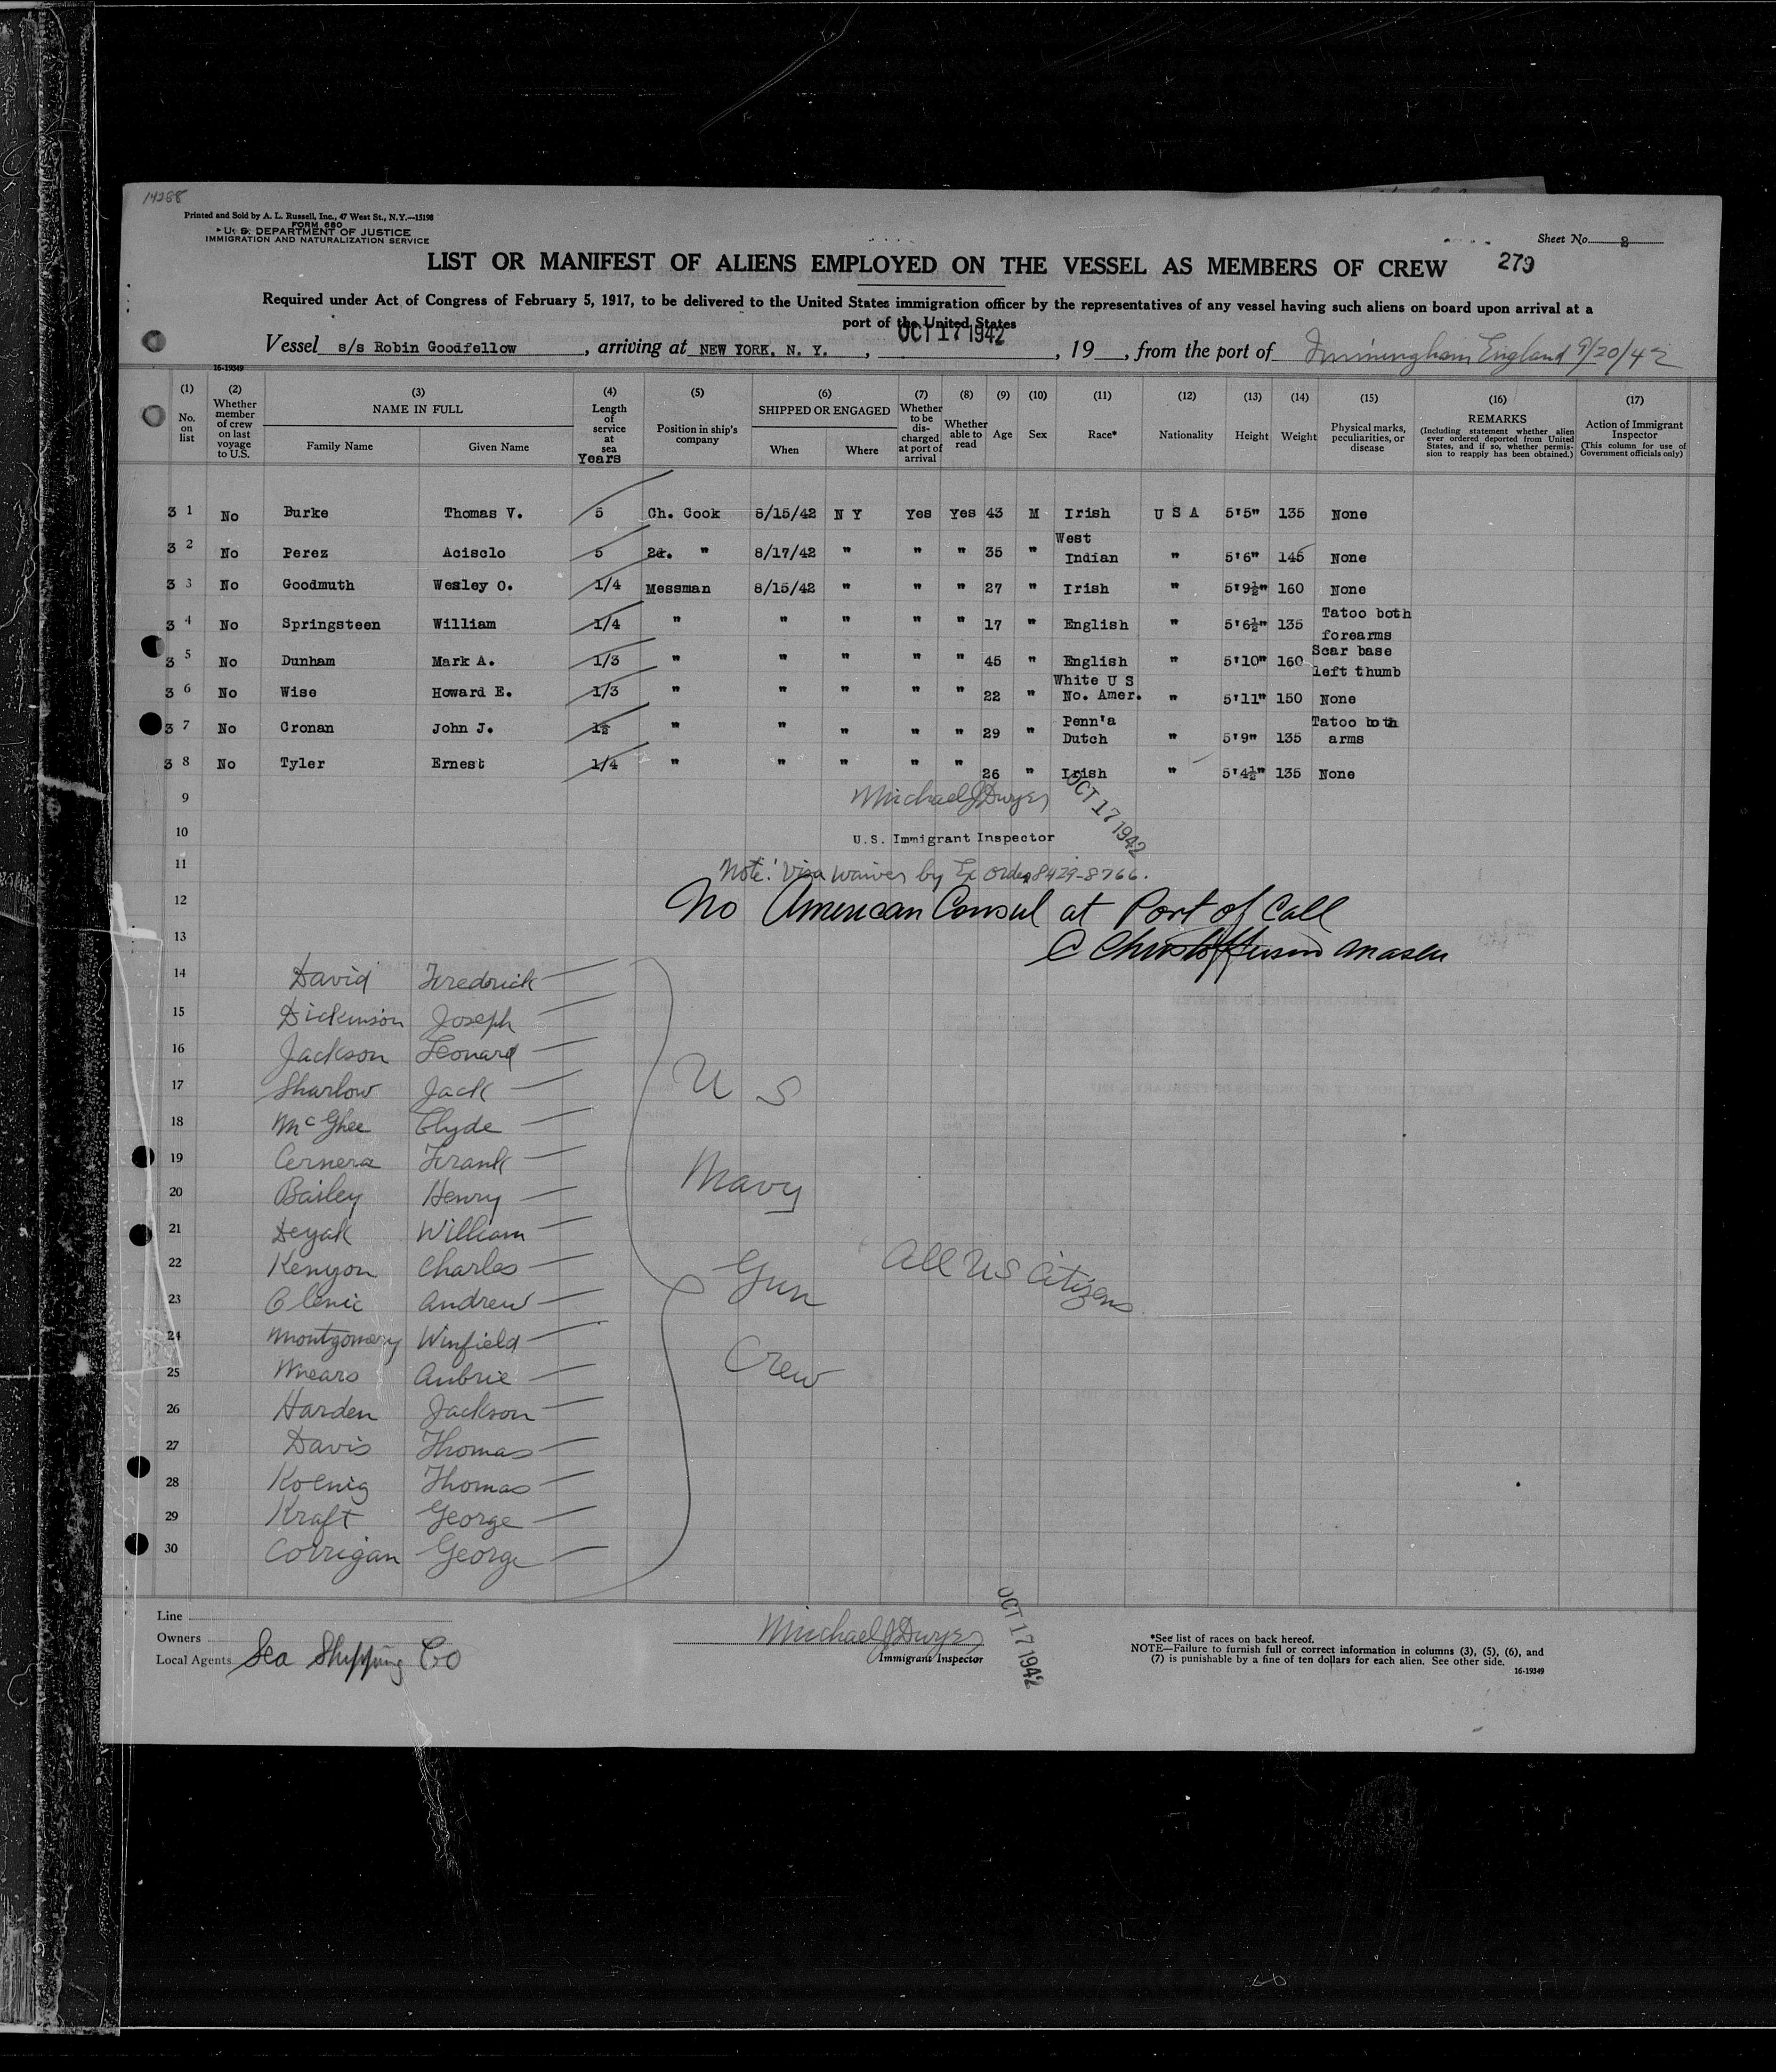 14288
Printed and Sold by A. L. Russell, Inc., 47 West St., N.Y.—15198
FORM 680
U. S. DEPARTMENT OF JUSTICE
IMMIGRATION AND NATURALIZATION SERVICE
Sheet No. 2
LIST OR MANIFEST OF ALIENS EMPLOYED ON THE VESSEL AS MEMBERS OF CREW 279
Required under Act of Congress of February 5, 1917, to be delivered to the United States immigration officer by the representatives of any vessel having such aliens on board upon arrival at a
port of the United States
OCT 17 1942
Vessel s/s Robin Goodfellow, arriving at NEW YORK, N. Y., , 19 , from the port of Immingham England 9/20/42
16-19349
(1) (2) (3) (4) (5) (6) (7) (8) (9) (10) (11) (12) (13) (14) (15) (16) (17)
No. on list
Whether member of crew on last voyage to U.S.
NAME IN FULL
Family Name Given Name
Length of service at sea
Years
Position in ship's company
SHIPPED OR ENGAGED
When Where
Whether to be discharged at port of arrival
Whether able to read
Age
Sex
Race*
Nationality
Height
Weight
Physical marks, peculiarities, or disease
REMARKS
(Including statement whether alien ever ordered deported from United States, and if so, whether permission to reapply has been obtained.)
Action of Immigrant Inspector
(This column for use of Government officials only)
3 1 No Burke Thomas V. 5 Ch. Cook 8/15/42 N Y Yes Yes 43 M Irish U S A 5'5" 135 None
3 2 No Perez Acisclo 5 2d. " 8/17/42 " " " 35 " West Indian " 5'6" 145 None
3 3 No Goodmuth Wesley O. 1/4 Messman 8/15/42 " " " 27 " Irish " 5'9½" 160 None
3 4 No Springsteen William 1/4 " " " " " 17 " English " 5'6½" 135 Tatoo both forearms
3 5 No Dunham Mark A. 1/3 " " " " " 45 " English " 5'10" 160 Scar base left thumb
3 6 No Wise Howard E. 1/3 " " " " " 22 " White U S No. Amer. " 5'11" 150 None
3 7 No Cronan John J. 1½ " " " " " 29 " Penn'a Dutch " 5'9" 135 Tatoo both arms
3 8 No Tyler Ernest 1/4 " " " " " 26 " Irish " 5'4½" 135 None
9 Michael J Dwyer OCT 17 1942
10 U.S. Immigrant Inspector
11 Note: Visa waiver by Ex Order 8429-8766.
12 No American Consul at Port of Call
13 C Christoffersen Master
14 David Fredrick
15 Dickinson Joseph
16 Jackson Leonard
17 Sharlow Jack
18 McGhee Clyde
19 Cernera Frank
20 Bailey Henry
21 Deyak William
22 Kenyon Charles
23 Clenic Andrew
24 Montgomery Winfield
25 Mears Aubrie
26 Harden Jackson
27 Davis Thomas
28 Koenig Thomas
29 Kraft George
30 Corrigan George
U S
Navy
Gun
Crew
All US Citizens
Line
Owners
Local Agents Sea Shipping Co
Michael J Dwyer
Immigrant Inspector
OCT 17 1942
*See list of races on back hereof.
NOTE—Failure to furnish full or correct information in columns (3), (5), (6), and
(7) is punishable by a fine of ten dollars for each alien. See other side.
16-19349